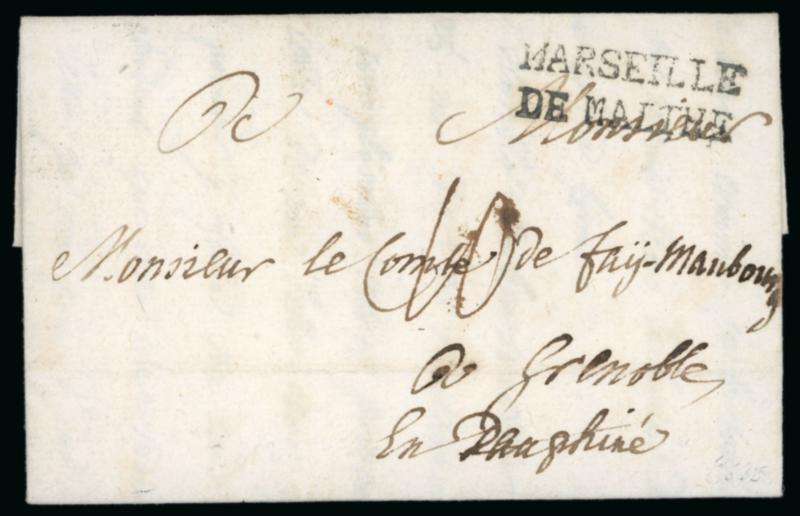 MARSEILLE
DE MALTHE
A Monsieur
Monsieur le Comte de faÿ-Maubourg
A Grenoble
En Dauphiné